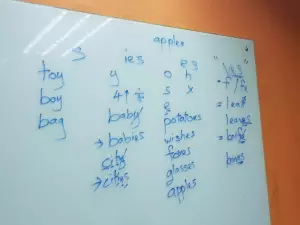 apples
s ies es "ves"
toy y o h f/fe
boy s x
bag baby s leaf
potatoes leaves
→ babies wishes
city foxes
→ cities glasses
apples